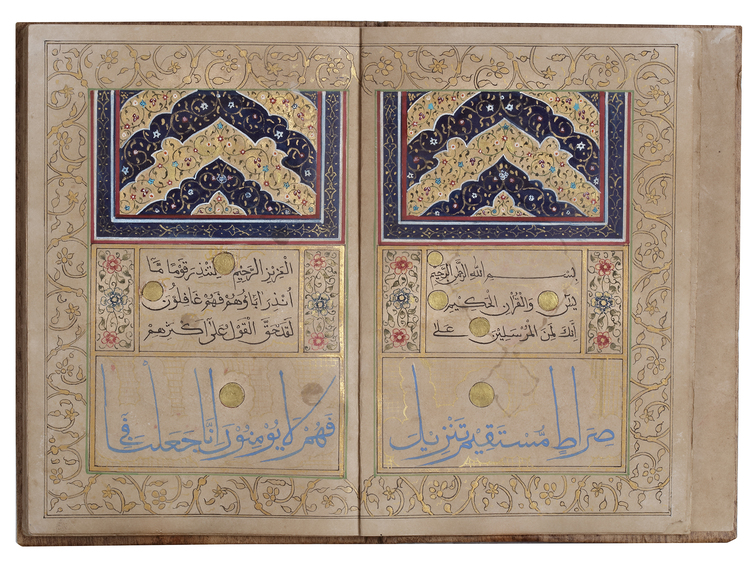 بسم الله الرحمن الرحيم
يس والقرآن الحكيم
انك لمن المرسلين على
صِرَاطٍ مُّسْتَقِيمٍ تَنْزِيلَ
العزيز الرحيم لتنذر قومًا مَّا
اُنذر اباؤهم فهم غافلون
لقد حق القول على اكثرهم
فَهُمْ لَا يُؤْمِنُونَ اِنَّا جَعَلْنَا فِي